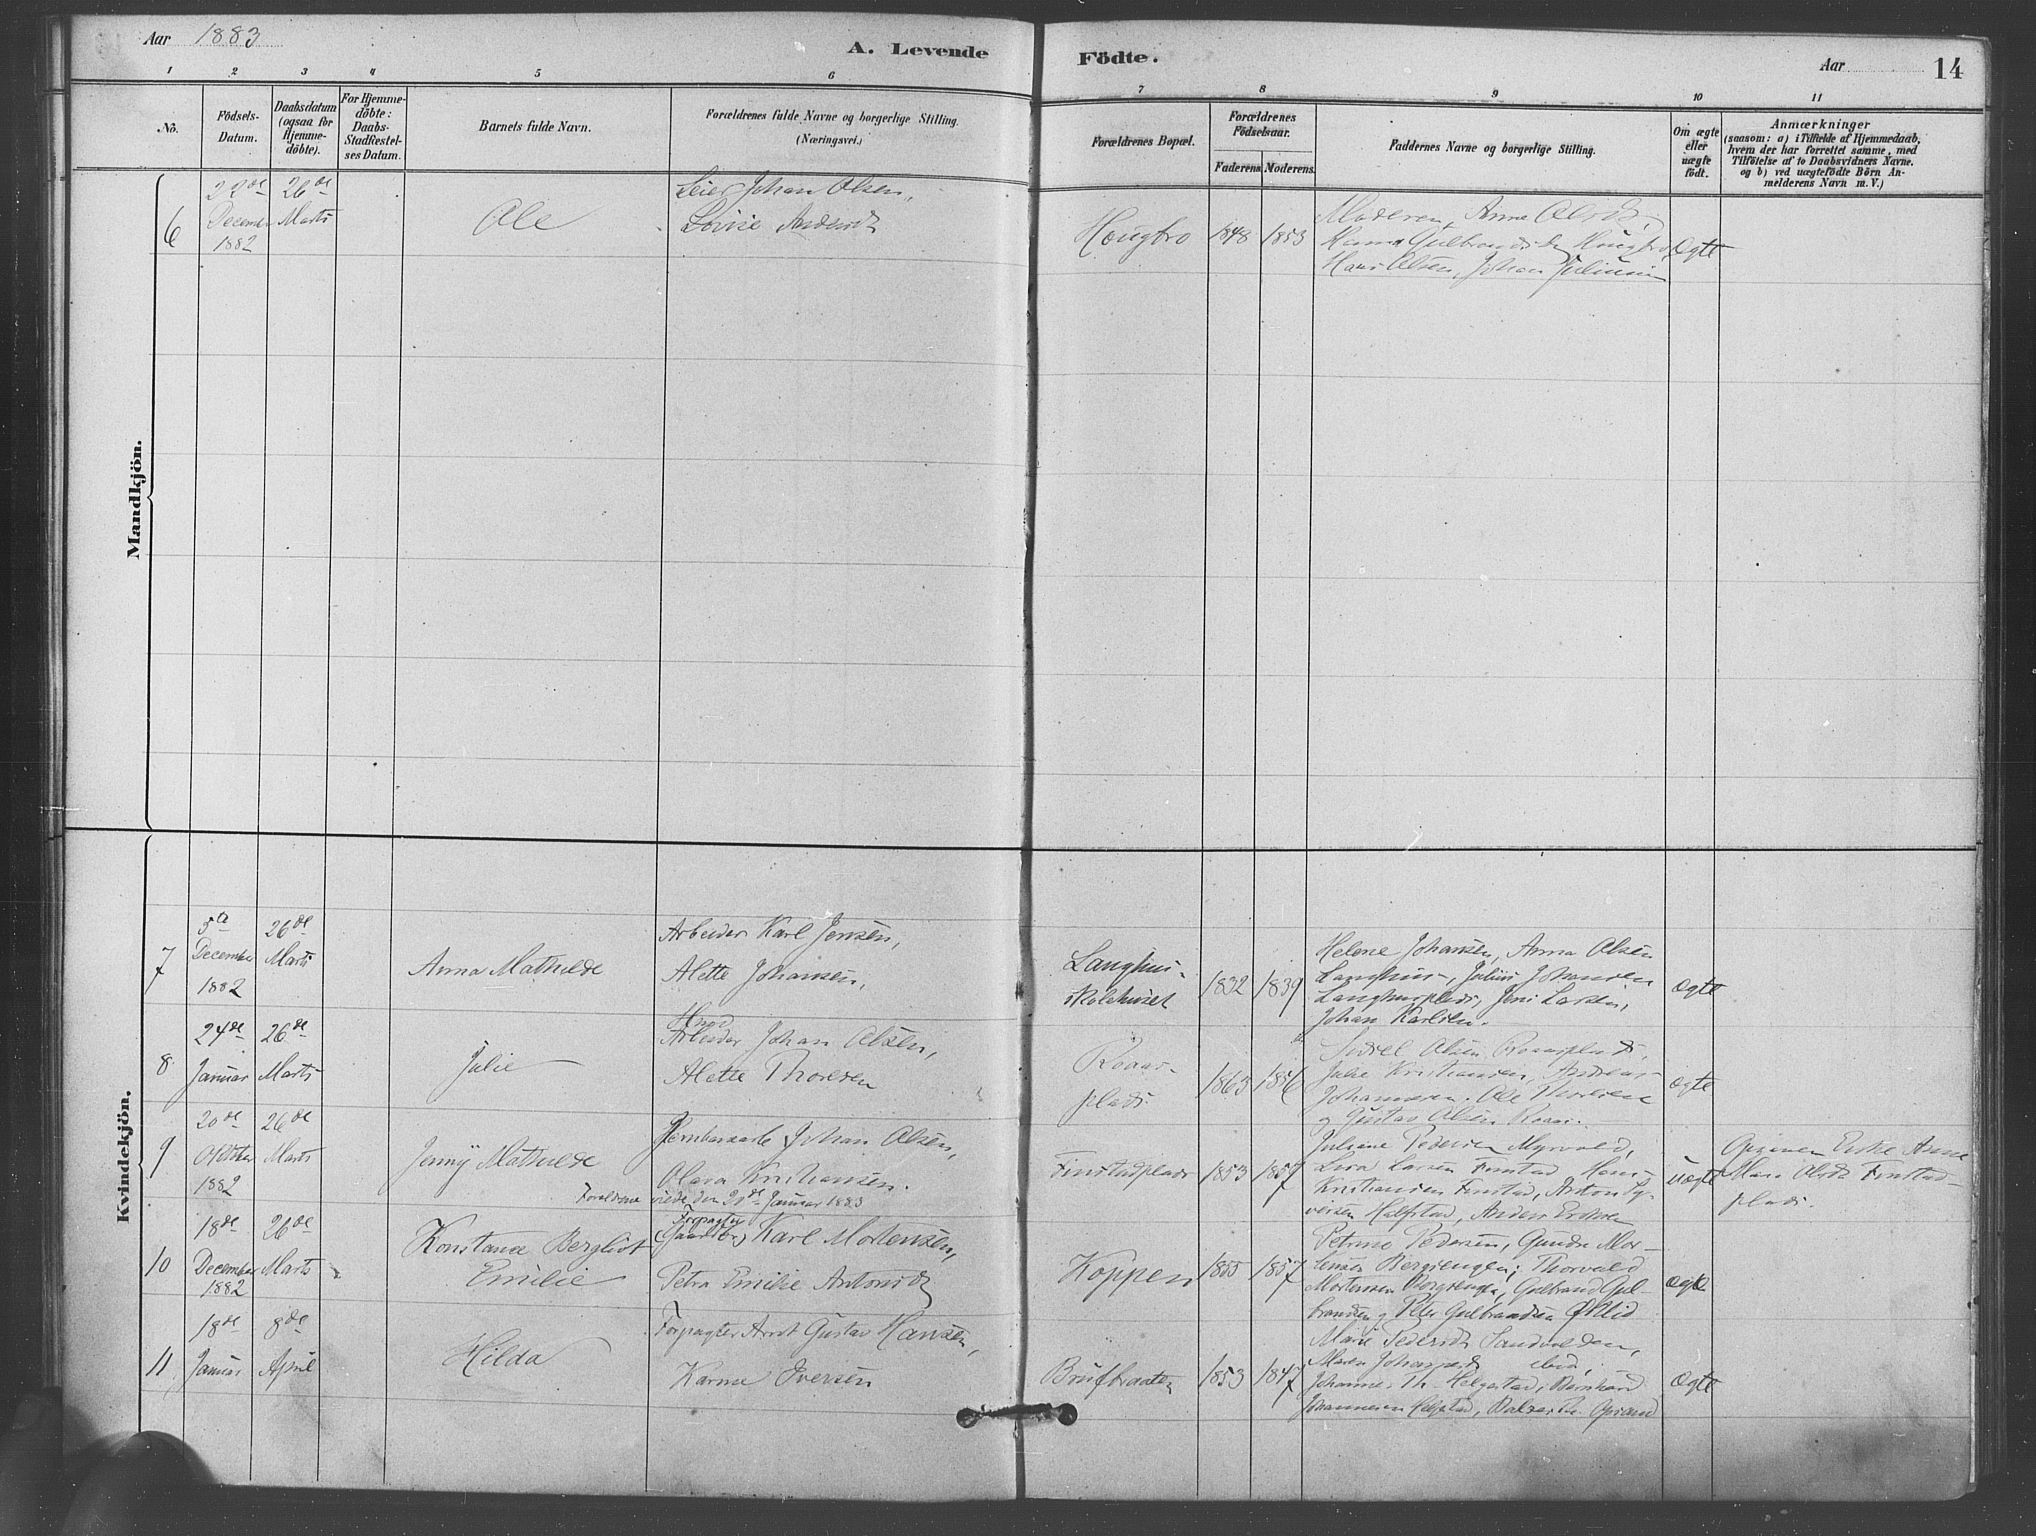 Aar 1883
A. Levende
Födte.
Aar
14
1 2 3 4 5 6 7 8 9 10 11
No.
Födsels-
Datum.
Daabsdatum
(ogsaa for
Hjemme-
döbte).
For Hjemme-
döbte:
Daabs-
Stadfestel-
ses Datum.
Barnets fulde Navn.
Forældrenes fulde Navne og borgerlige Stilling.
(Næringsvei.)
Forældrenes Bopæl.
Forældrenes
Födselsaar.
Faderens
Moderens.
Faddernes Navne og borgerlige Stilling.
Om ægte
eller
uægte
födt.
Anmærkninger
(saasom: a) i Tilfælde af Hjemmedaab,
hvem der har forrettet samme, med
Tilföielse af to Daabsvidners Navne.
og b) ved uægtefödte Börn An-
melderens Navn m. V.)
Mandkjön.
6
22de
December
1882
26de
Marts
Ole
Johan Olsen,
Lovise
Hougbro
1848
1853
Moderen, Anna
Hans Olsen, Johan
Ægte
Kvindekjön.
7
5te
December
1882
26de
Marts
Anna Mathilde
Arbeider Karl Jensen,
Alette Johansen,
Langhus-
skolehuset
1832
1839
Helene Johansen, Anna Olsen
Langhus, Julius Johansen
Langhusplads, Jens Larsen,
Johan Karlsen.
Ægte
8
24de
Januar
26de
Marts
Julie
Arbeider Johan Olsen,
Alette Thoresen
Roaas-
plads
1863
1856
Olsen Roaasplads,
Julie Kristiansen, Andreas
Johannesen, Ole Thoresen
og Gustav Olsen Roaas.
Ægte
9
20de
Oktober
1882
26de
Marts
Jenny Mathilde
Johan Olsen,
Olava Kristiansen.
Forældrene viede den Januar 1883
Finstadplads
1853
1857
Juliane Pedersen Myrvold,
Lina Larsen Finstad, Hans
Kristiansen Finstad, Anton Sy-
versen Halfstad, Anders Eriksen
Uægte
Opgiven Enke Anne
Mari Olsdt Finstad-
plads.
10
18de
December
1882
26de
Marts
Konstance Bergliot
Emilie
Forpagter
Karl Mortensen,
Petra Emilie Antonsdt
Koppen
1855
1857
Petrine Pedersen, Gunda Mor-
tensen Bergsengen, Thorvald
Mortensen Bergsengen, Gulbrand Gul-
brandsen og Peter Gulbrandsen
Ægte
11
18de
Januar
8de
April
Hilda
Forpagter Arnt Gustav Hansen,
Karine Iversen
1853
1847
Marie Pedersdt Sandvolden,
Maren
Johannes Th. Helgestad, Bernhard
Johannesen Helgestad,
Ægte